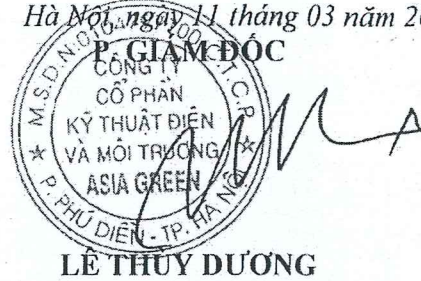 Hà Nội, ngày 11 tháng 03 năm
P. GIÁM ĐỐC
CÔNG TY
CỔ PHẦN
KỸ THUẬT ĐIỆN
VÀ MÔI TRƯỜNG
ASIA GREEN
P. PHÚ DIỄN - TP. HÀ NỘI
LÊ THÙY DƯƠNG